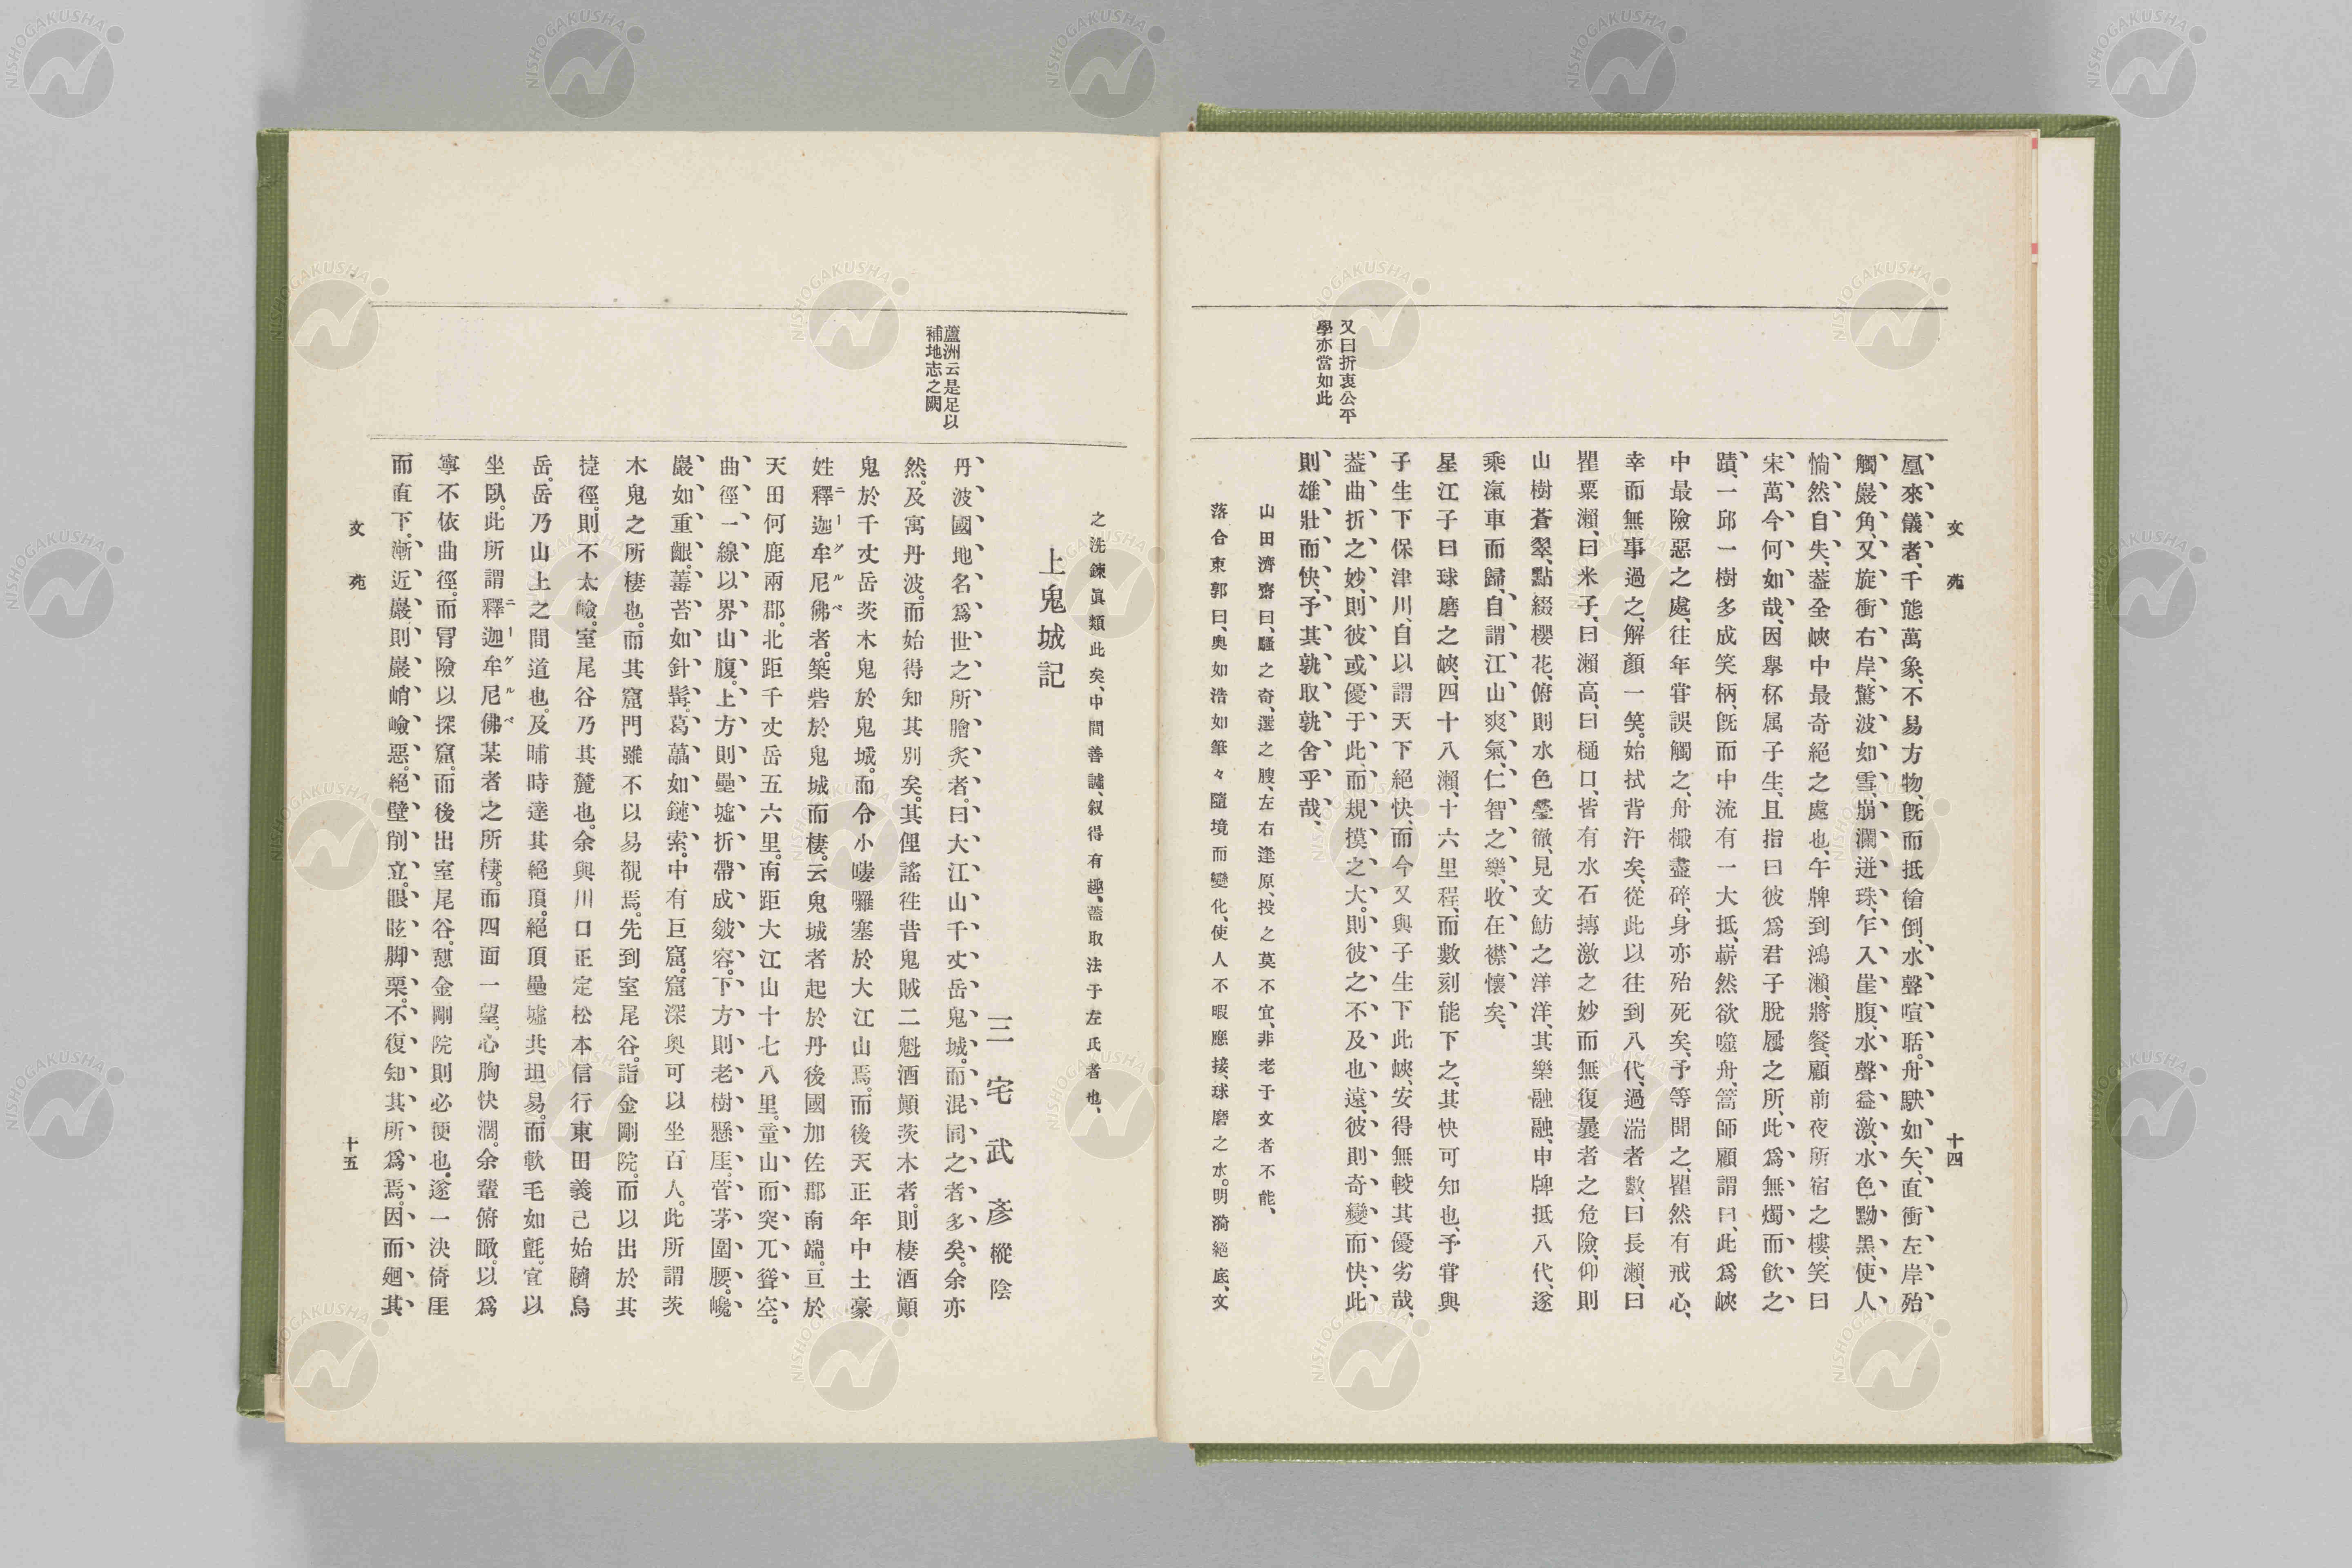 文苑
十四
又曰折衷公平
學亦當如此
凰來儀者、千態萬象、不易方物、旣而抵槍倒、水聲喧聒。舟駛如矢、直衝左岸、殆
觸巖角、又旋衝右岸、驚波如雪、崩瀾迸珠、乍入崖腹、水聲益激、水色黝黑、使人
惝然自失、蓋全峽中最奇絕之處也、午牌到鴻瀨、將餐、顧前夜所宿之樓、笑曰
宋萬今何如哉、因擧杯属子生、且指曰彼爲君子脫屣之所、此爲無燭而飮之
蹟、一邱一樹多成笑柄、旣而中流有一大抵、嶄然欲噬舟、篙師顧謂曰、此爲峽
中最險惡之處、往年甞誤觸之、舟檝盡碎、身亦殆死矣、予等聞之、瞿然有戒心、
幸而無事過之、解顏一笑。始拭背汗矣、從此以往到八代、過湍者數、曰長瀨、曰
瞿粟瀨、曰米子、曰瀨高、曰樋口、皆有水石摶激之妙而無復曩者之危險、仰則
山樹蒼翠、點綴櫻花、俯則水色瑩徹、見文魴之洋洋、其樂融融、申牌抵八代、遂
乘滊車而歸、自謂江山爽氣、仁智之樂、收在襟懷矣、
星江子曰球磨之峽、四十八瀨、十六里程、而數刻能下之、其快可知也、予甞與
子生下保津川、自以謂天下絕快、而今又與子生下此峽、安得無較其優劣哉、
蓋曲折之妙、則彼或優于此、而規摸之大、則彼之不及也遠、彼則奇變而快、此
則雄壯而快、予其孰取孰舍乎哉、
山田濟齋曰、騷之奇、選之腴、左右逢原、投之莫不宜、非老于文者不能、
落合東郭曰、奧如浩如筆々隨境而變化、使人不暇應接、球磨之水。明漪絕底、文
之洗鍊眞類此矣、中間善謔、叙得有趣、蓋取法于左氏者也、
蘆洲云是足以
補地志之闕
上鬼城記
三宅武彥樅陰
丹波國地名爲世之所膾炙者。曰大江山千丈岳鬼城。而混同之者多矣。余亦
然。及寓丹波。而始得知其別矣。其俚謠徃昔鬼賊二魁酒顚茨木者。則棲酒顚
鬼於千丈岳茨木鬼於鬼城。而令小嘍囉塞於大江山焉。而後天正年中土豪
姓釋迦牟尼佛者。築砦於鬼城而棲。云鬼城者起於丹後國加佐郡南端。亘於
天田何鹿兩郡。北距千丈岳五六里。南距大江山十七八里。童山而突兀聳空。
曲徑一線以界山腹。上方則壘墟折帶成皴容。下方則老樹懸厓。菅茅圍腰。巉
巖如重齦。薵苔如針髯。葛藟如鏈索。中有巨窟。窟深奧可以坐百人。此所謂茨
木鬼之所棲也。而其窟門雖不以易覩焉。先到室尾谷。詣金剛院。而以出於其
捷徑。則不太嶮。室尾谷乃其麓也。余與川口正定松本信行東田義己始躋鳥
岳。岳乃山上之間道也。及晡時達其絕頂。絕頂壘墟共坦易。而軟毛如氈。宜以
坐臥。此所謂釋迦牟尼佛某者之所棲。而四面一望。心胸快濶。余輩俯瞰。以爲
寧不依曲徑。而冐險以探窟。而後出室尾谷。憇金剛院則必便也。遂一決倚厓
而直下。漸近巖。則巖峭嶮惡。絕壁削立。眼眩脚栗。不復知其所爲焉。因而廻其
文苑
十五